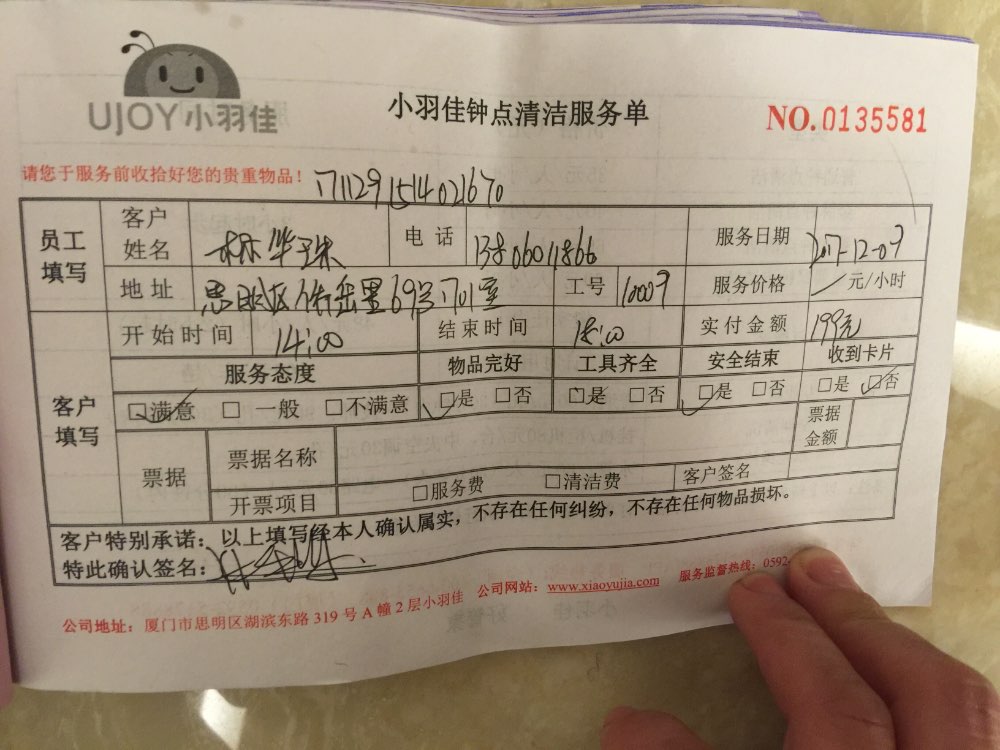 UJOY小羽佳
小羽佳钟点清洁服务单
NO.0135581
请您于服务前收拾好您的贵重物品！
1711291514021670
员工填写 客户姓名 林华珠 电话 13806011866 服务日期 2017-12-07
地址 思明区 69号701室 工号 10007 服务价格 元/小时
开始时间 14:00 结束时间 18:00 实付金额 199元
客户填写 服务态度 物品完好 工具齐全 安全结束 收到卡片
□满意 □一般 □不满意 □是 □否 □是 □否 □是 □否 □是 □否
票据 票据名称 票据金额
开票项目 □服务费 □清洁费 客户签名
客户特别承诺：以上填写经本人确认属实，不存在任何纠纷，不存在任何物品损坏。
特此确认签名：
公司地址：厦门市思明区湖滨东路319号A幢2层小羽佳 公司网站：www.xiaoyujia.com 服务监督热线：0592-